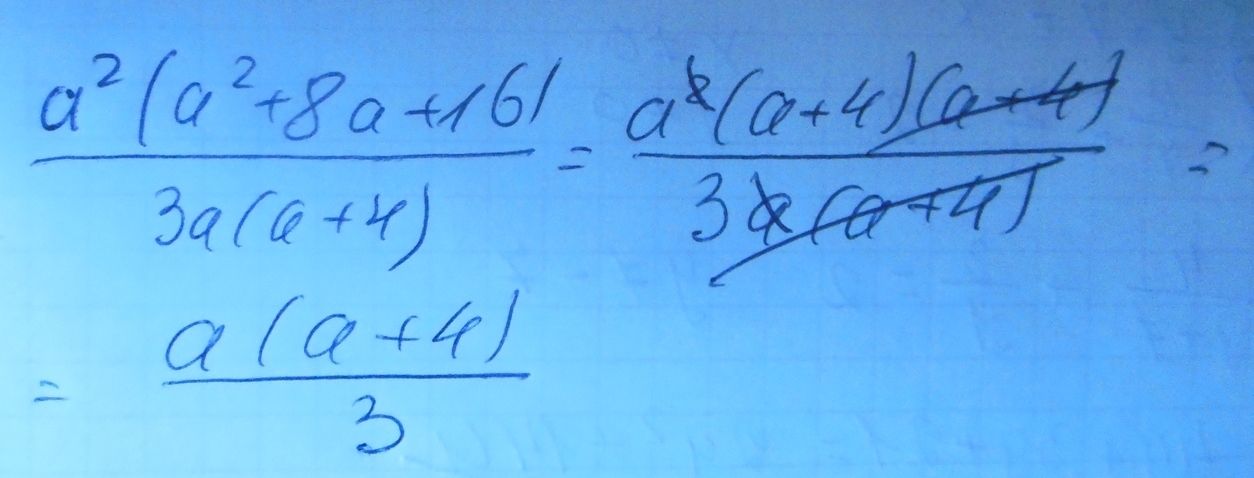 a²(a²+8a+16) / 3a(a+4) = a²(a+4)(a+4) / 3a(a+4) =
= a(a+4) / 3